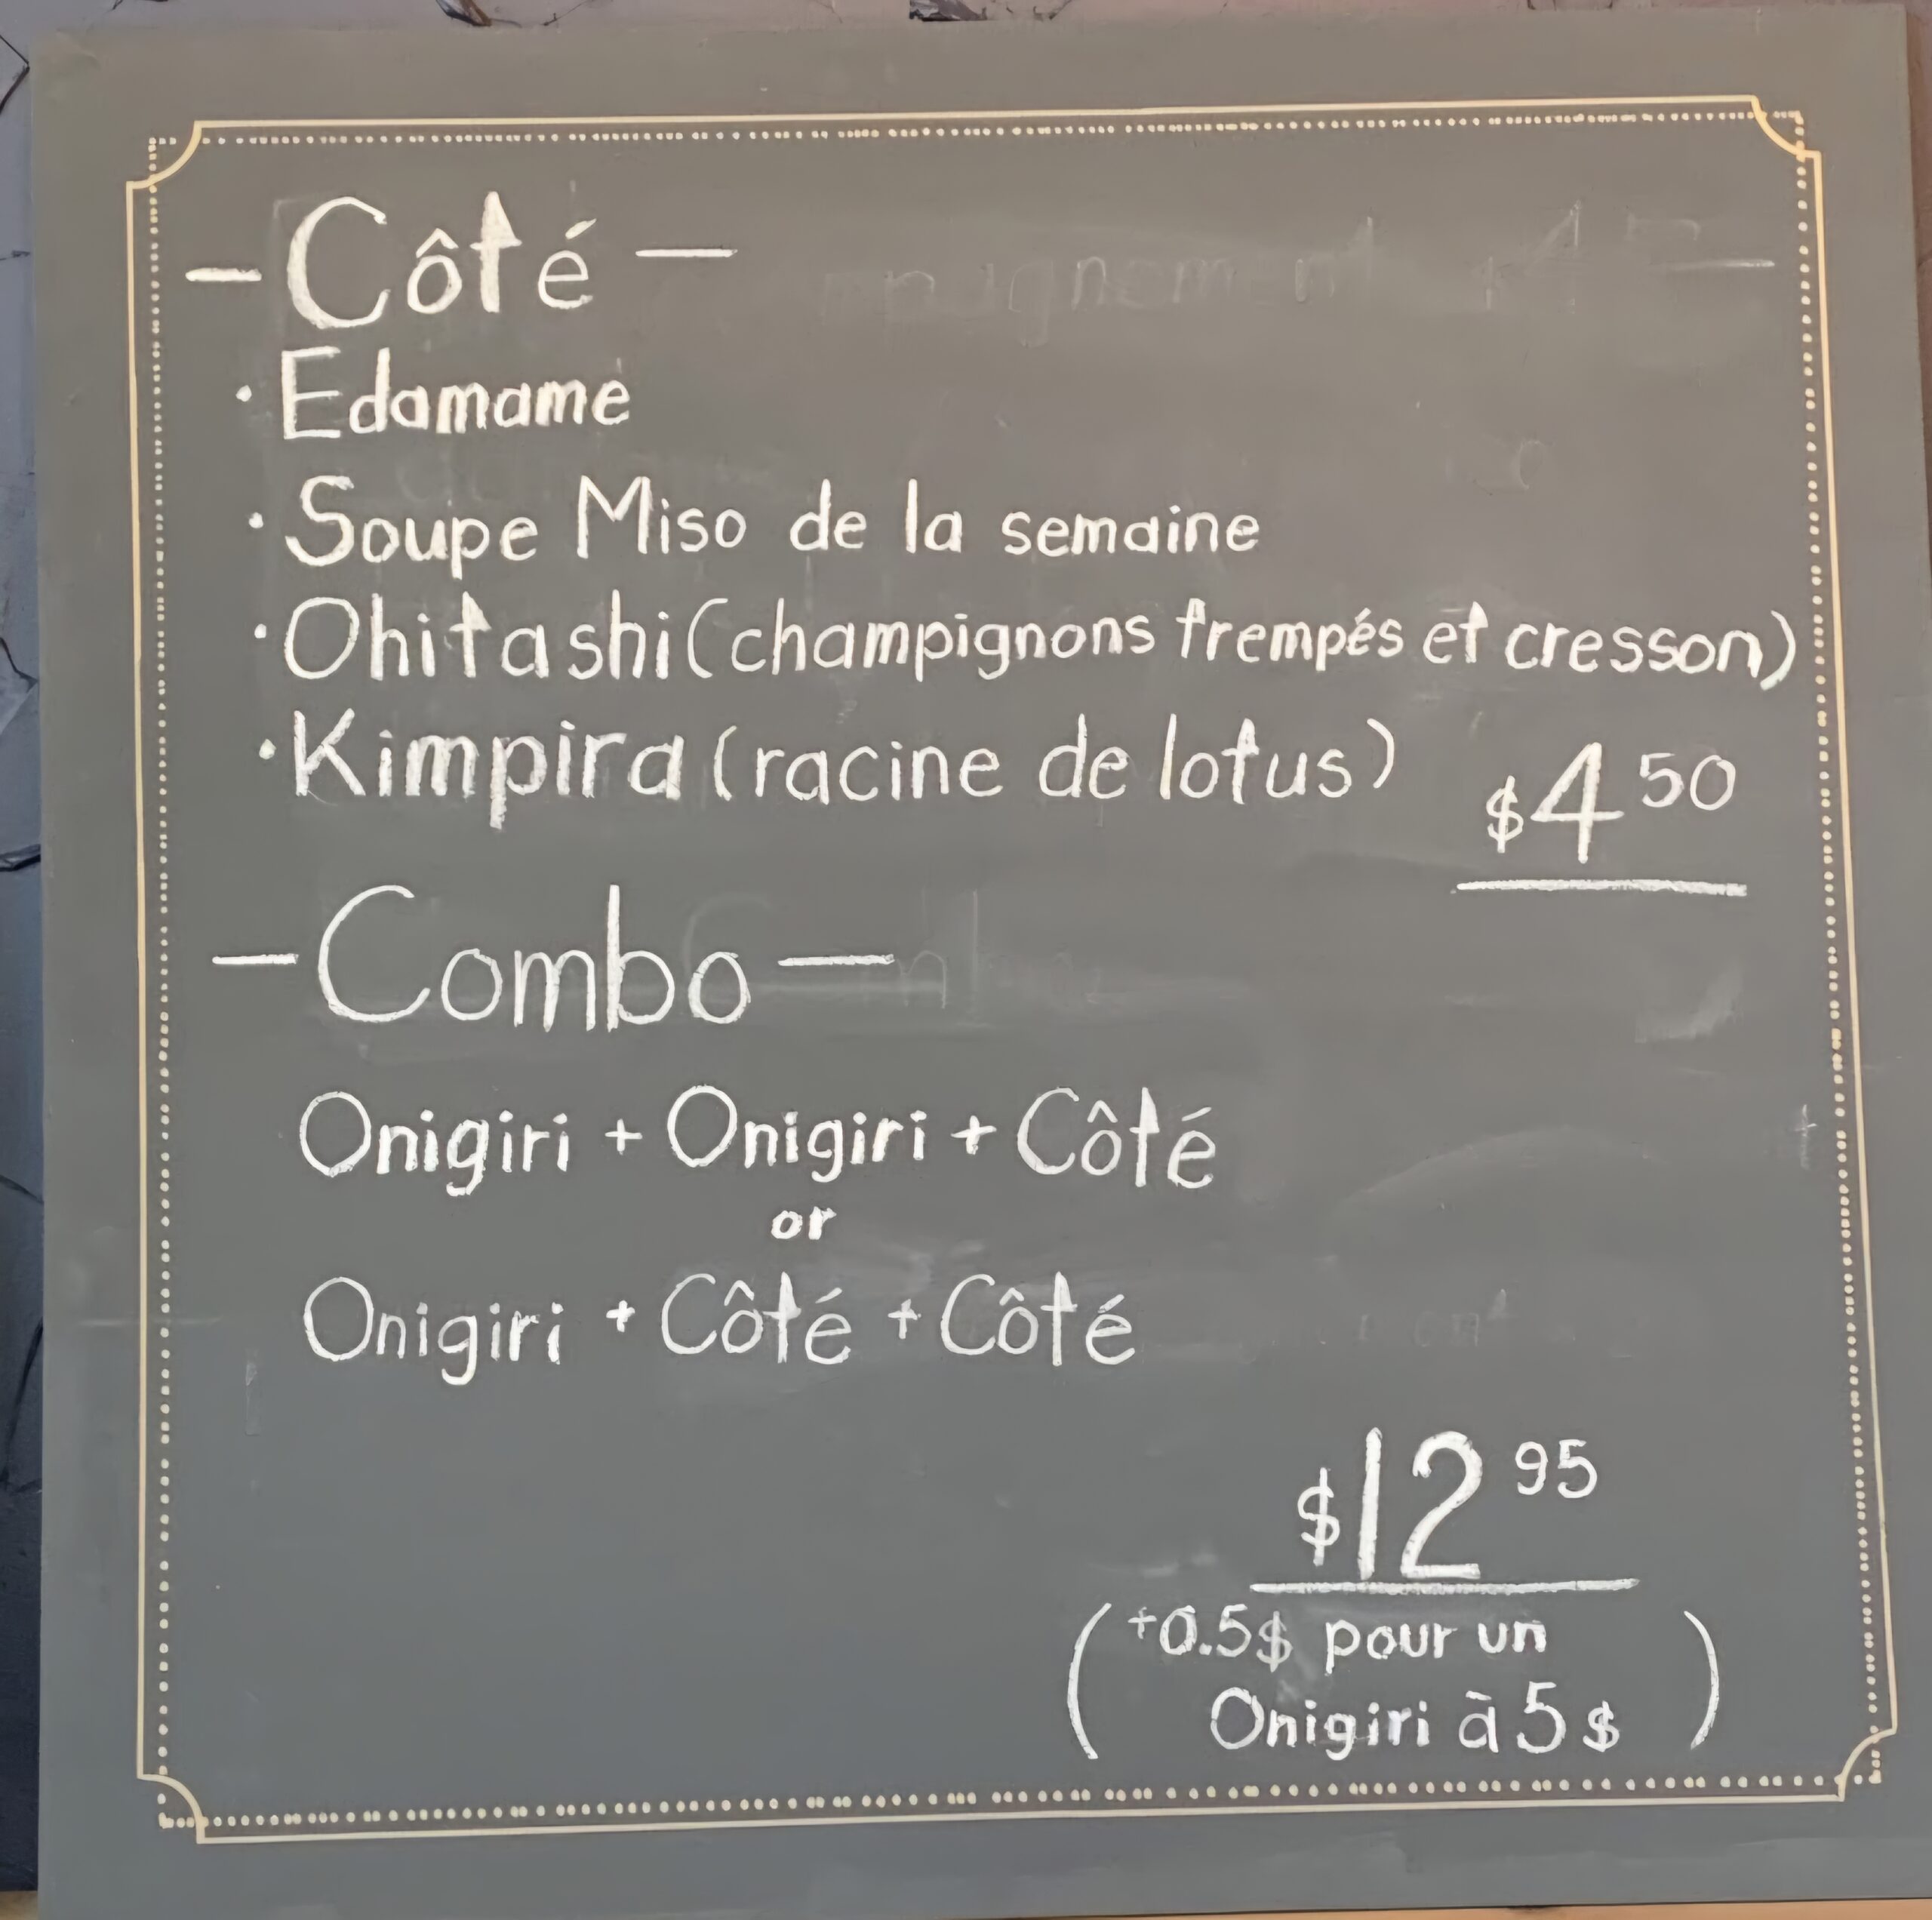 -Côté-
·Edamame
·Soupe Miso de la semaine
·Ohitashi (champignons trempés et cresson)
·Kimpira (racine de lotus) $4 50
-Combo-
Onigiri + Onigiri + Côté
or
Onigiri + Côté + Côté
$12 95
(+0.5$ pour un
Onigiri à 5$)